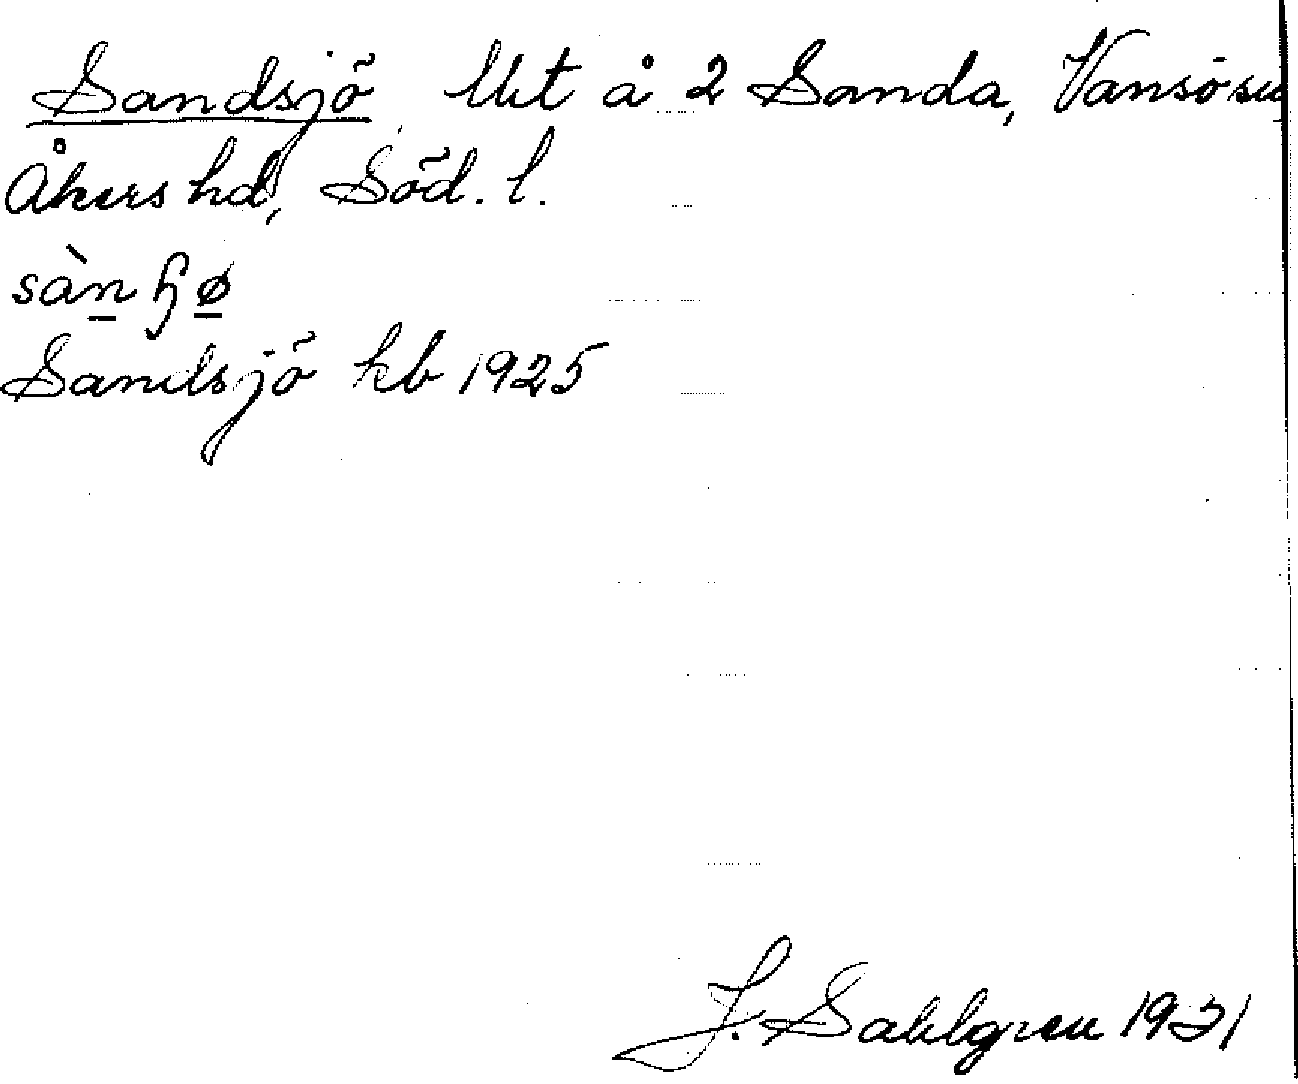 Sandsjö Utt å 2 Sanda, Vansö sn
Åkers hd, Söd. l.
sàn ɧø
Sandsjö kb 1925
J. Sahlgren 1931